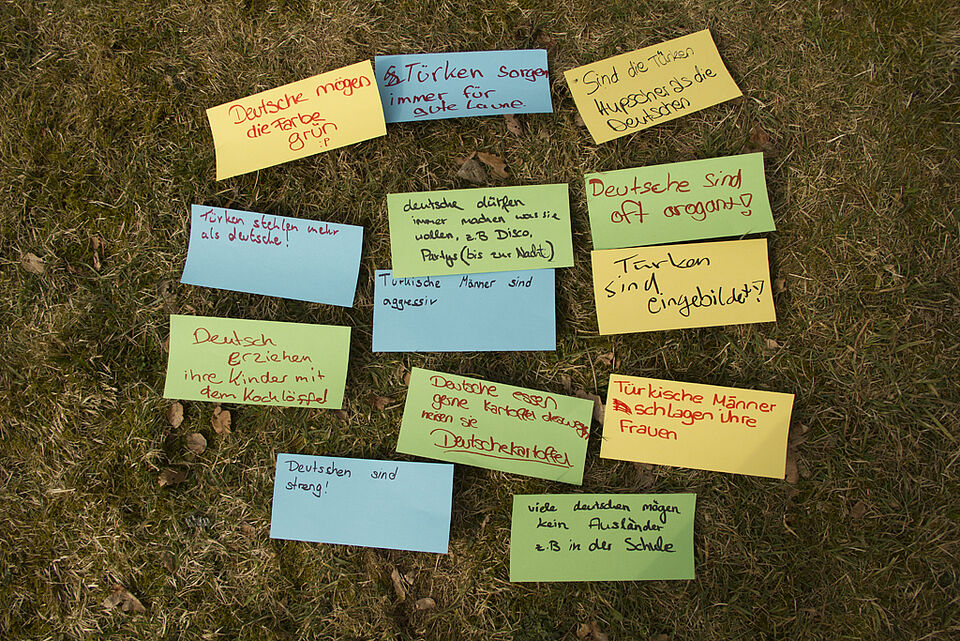 Deutsche mögen
die Farbe
grün
:P
Türken sorgen
immer für
gute Laune.
• Sind die Türken
Hüpscher als die
Deutschen
Deutsche sind
oft arogant!
deutsche dürfen
immer machen was sie
wollen, z.B Disco,
Partys (bis zur Nacht)
Türken stehlen mehr
als deutsche!
Türkische Männer sind
aggressiv
Türken
sind
eingebildet!
Deutsch
erziehen
ihre Kinder mit
dem Kochlöffel
Deutsche essen
gerne Kartoffel deswegen
sie
Deutschekartoffel
Türkische Männer
schlagen ihre
Frauen
Deutschen sind
streng!
viele deutschen mögen
kein Ausländer
z.B in der Schule